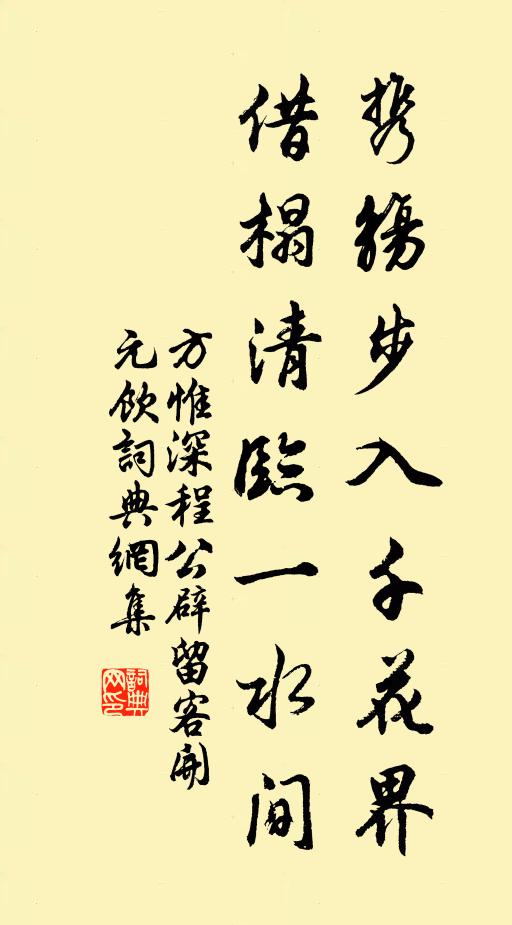 携觴步入千花界
借榻清臨一水間
方惟深程公辟留客開
元飲詞典網集
詞典网印